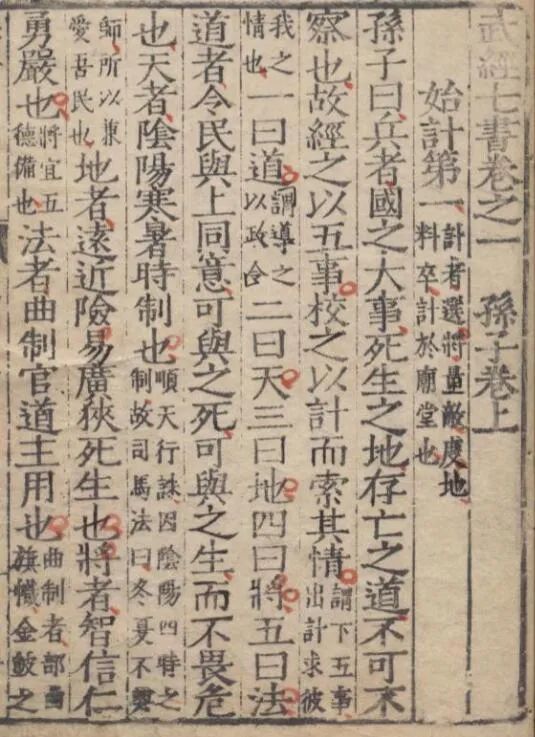 武經七書卷之一　孫子卷上
始計第一計者選將量敵度地料卒計於廟堂也
孫子曰兵者國之大事死生之地存亡之道不可不
察也故經之以五事校之以計而索其情謂下五事出計求彼
我之情也一曰道謂導之以政令二曰天三曰地四曰將五曰法
道者令民與上同意可與之死可與之生而不畏危
也天者陰陽寒暑時制也順天行誅因陰陽四時之制故司馬法曰冬夏不興
師所以兼愛吾民也地者遠近險易廣狹死生也將者智信仁
勇嚴也將宜五德備也法者曲制官道主用也曲制者部曲旗幟金鼓之